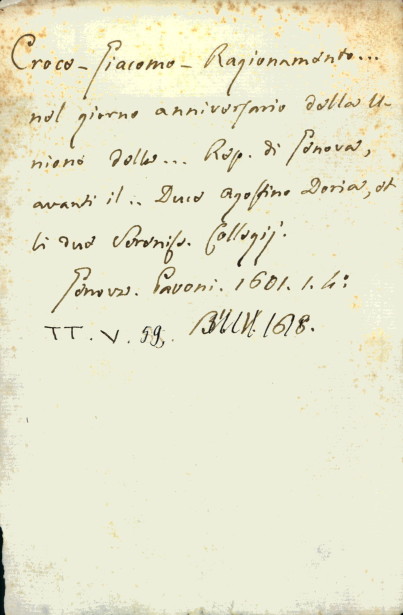 Croce - Giacomo - Ragionamento...
nel giorno anniversario della U-
nione della... Rep. di Genova,
avanti il .. Duce Agostino Doria, et
li due Sereniss. Collegij.
Genova. Pavoni. 1601. 1. 4°
TT. V. 59. 1618.